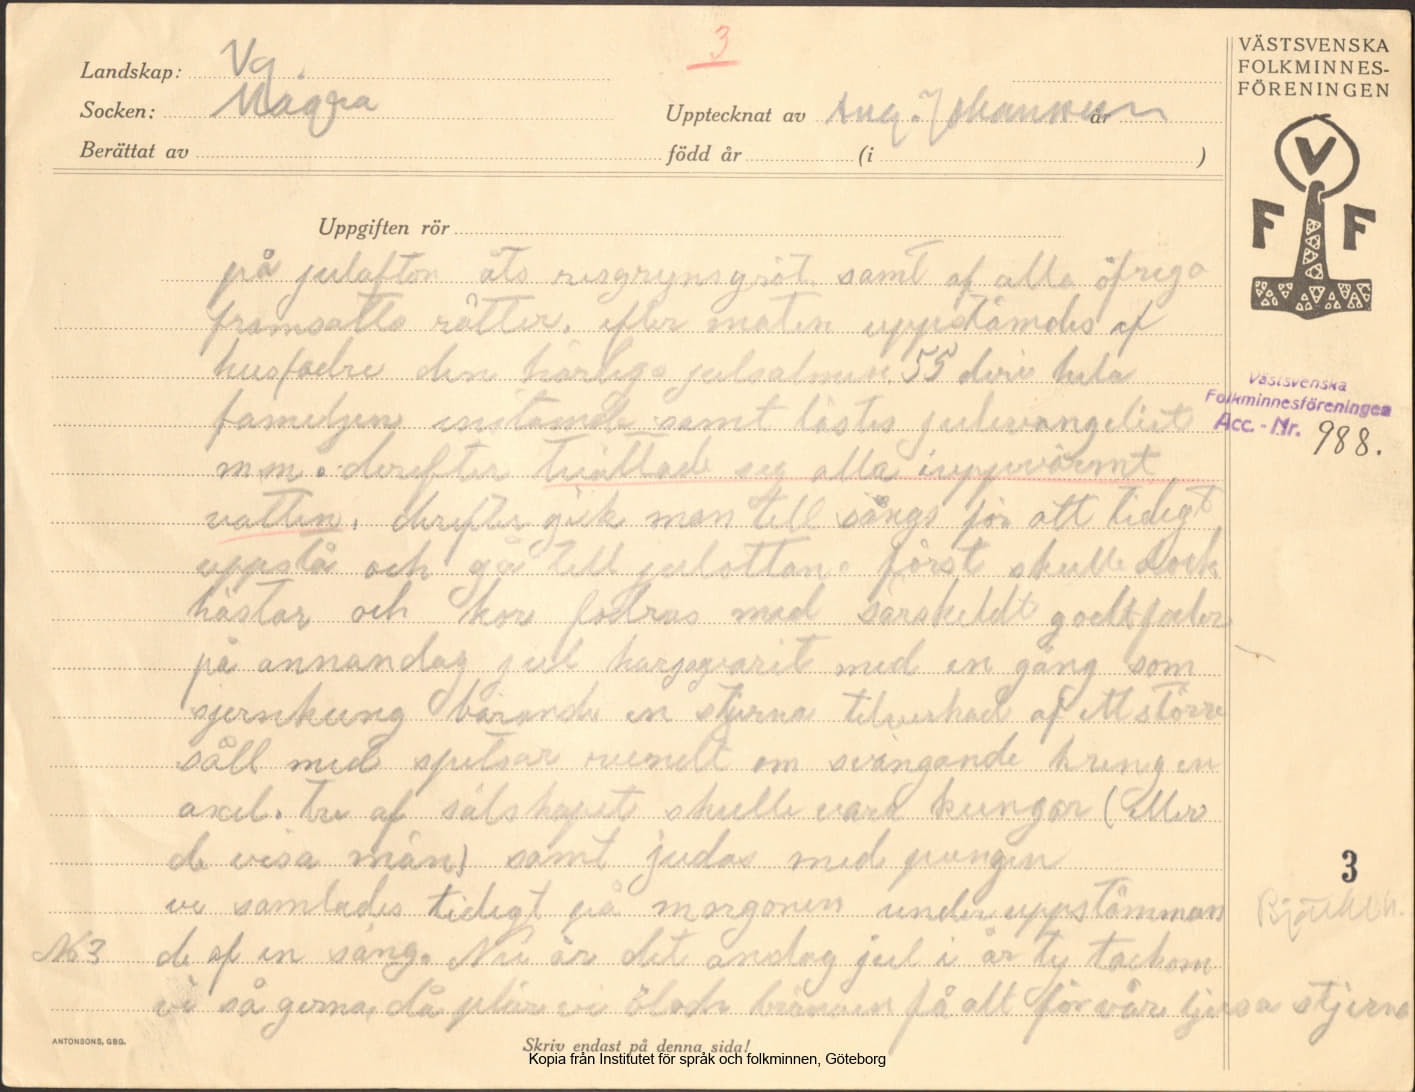 3
Landskap: Vg.
Socken: Mägra
Upptecknat av Aug. Johansson år
Berättat av född år (i )
VÄSTSVENSKA
FOLKMINNES-
FÖRENINGEN
V
F F
Uppgiften rör
på julafton äts risgrynsgröt samt af alla öfriga
framsatta rätter. efter maten uppstämdes af
husfadre den härliga julsalmen 55 deri hela
familjen instämde samt lästes julevangeliet
m.m. derefter tvättade sig alla i uppvärmt
vatten. derefter gick man till sängs för att tidigt
uppstå och gå till julottan. först skulle dock
hästar och kor fodras med särskeldt godt foder
på annandag jul har jag varit med en gång som
sjernkung bärande en stjerna tilverkad af ett större
såll med spetsar runndt om svängande kring en
axel. tre af sälskapet skulle vara kungar (eller
de visa män) samt judas med pungen
vi samlades tidigt på morgonen under uppstämman
No 3 de af en sång. Nu är det andag jul i år ty tackom
vi så gerna, då plär vi få alt för vår ljusa stjerna
Västsvenska
Folkminnesföreningen
Acc. - Nr. 988.
3
ANTONSONS, GBG.
Skriv endast på denna sida!
Kopia från Institutet för språk och folkminnen, Göteborg